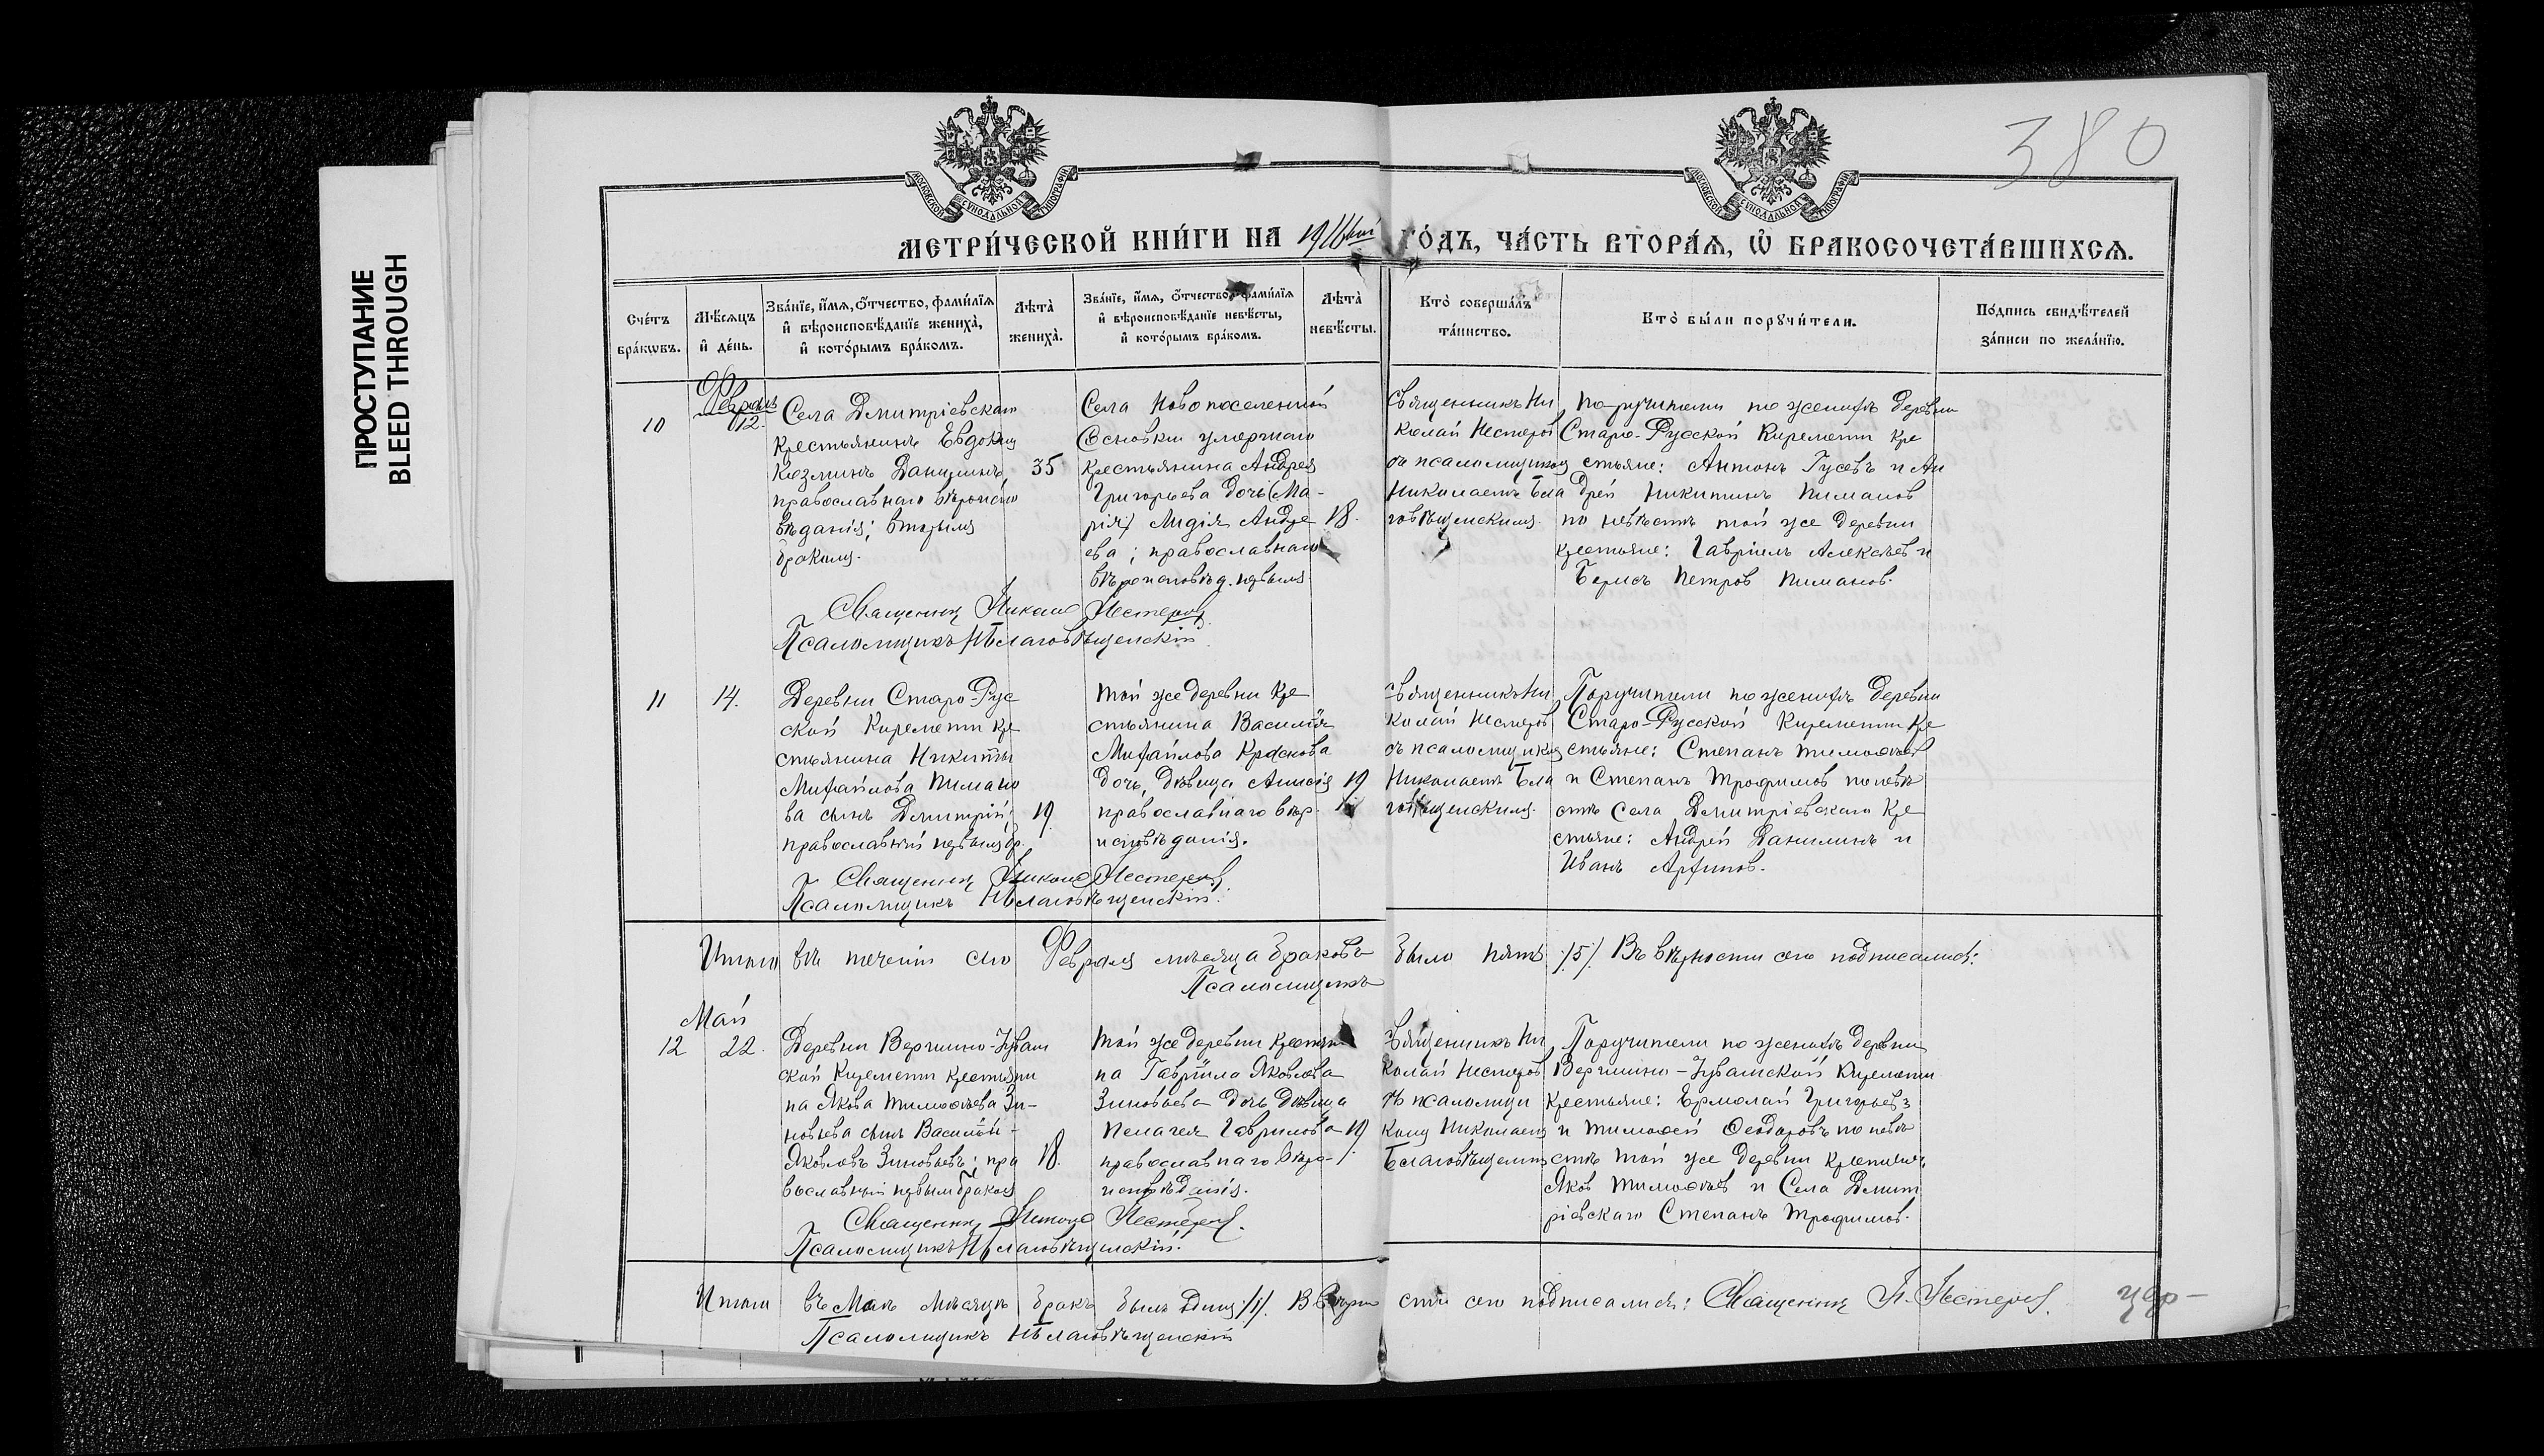 380
ПРОСТУПАНИЕ
BLEED THROUGH
МОСКОВСКОЙ СѴНОДАЛЬНОЙ ТИПОГРАФІИ
МОСКОВСКОЙ СѴНОДАЛЬНОЙ ТИПОГРАФІИ
МЕТРИ́ЧЕСКОЙ КНИ́ГИ НА 1916й ГО́ДЪ, ЧА́СТЬ ВТОРА́Ѧ, Ѽ БРАКОСОЧЕТА́ВШИХСѦ.
Сче́тъ
бра́кѡвъ.
Мѣ́сѧцъ
и҆ де́нь.
Зва́нїе, и҆́мѧ, ѻ҆́тчество, фами́лїѧ
и҆ вѣроисповѣ́данїе жениха̀,
и҆ кото́рымъ бра́комъ.
Лѣта̀
жениха̀.
Зва́нїе, и҆́мѧ, ѻ҆́тчество, фами́лїѧ
и҆ вѣроисповѣ́данїе невѣ́сты,
и҆ кото́рымъ бра́комъ.
Лѣта̀
невѣ́сты.
Кто̀ соверша́лъ
та́инство.
Кто̀ бы́ли порꙋчи́тели.
По́дпись свидѣ́телей
за́писи по жела́нїю.
10
Февраль
12.
Села Дмитріевскаго
крестьянинъ Евдоким
Козминъ Данилинъ,
православнаго вѣроиспо
вѣданія; вторымъ
бракомъ.
35
Села Новопоселенной
Сосновки умершаго
крестьянина Андрея
Григорьева дочь (Ма-
рія) Лидія Андре
ева; православнаго
вѣроисповѣд. первымъ
18.
Священникъ Ни
колай Нестеров
съ псаломщиком
Николаемъ Бла
говѣщенскимъ.
Поручители по женихѣ деревни
Старо-Русской Киремети кре
стьяне: Антонъ Гусевъ и Ан
дрей Никитинъ Пиманов
по невѣстѣ той же деревни
крестьяне: Гавріилъ Алексѣев и
Борисъ Петров Пиманов.
Священник Николай Нестеров
Псаломщикъ Н Благовѣщенскій
11
14.
Деревни Старо-Рус
ской Киремети кре
стьянина Никиты
Михайлова Пимано
ва сынъ Димитрій;
православный первым бр.
19.
Той же деревни кре
стьянина Василія
Михайлова Краснова
дочь, дѣвица Анисія
православнаго вѣр.
исповѣданія.
19
Священникъ Ни
колай Нестеров
съ псаломщиком
Николаемъ Бла
говѣщенскимъ.
Поручители по женихѣ деревни
Старо-Русской Киремети кре
стьяне: Степанъ Тимоѳѣев
и Степанъ Трофимов по невѣ
стѣ Села Дмитріевскаго кре
стьяне: Андрей Данилинъ и
Иванъ Архипов.
Священник Николай Нестеров.
Псаломщикъ Н Благовѣщенскій.
Итого въ теченіи сего Февраля мѣсяца браковъ было пять /5/. Въ вѣрности сего подписались:
Псаломщикъ
Май
12
22.
Деревни Вершино-Чуваш
ской Киремети крестьяни
на Якова Тимоѳѣева Зи-
новьева сынъ Василій-
Яковлевъ Зиновьевъ; пра
вославный первым браком
18.
Той же деревни крестьяни
на Гавріила Яковлева
Зиновьева дочь дѣвица
Пелагея Гаврилова
православнаго вѣро-
исповѣданія.
19
Священникъ Ни
колай Нестеров
съ псаломщи
комъ Николаем
Благовѣщенским
Поручители по женихѣ деревни
Вершино-Чувашской Киремети
крестьяне: Ермолай Григорьев
и Тимоѳей Ѳеодоровъ по невѣ
стѣ той же деревни крестьянинъ
Яков Тимоѳѣев и Села Дмит
ріевскаго Степанъ Трофимов.
Священник Николай Нестеров.
Псаломщикъ Н Благовѣщенскій.
Итого въ Маѣ мѣсяцѣ бракъ былъ одинъ /1/. Въ вѣрно сти сего подписались: Священник Н. Нестеров.
Псаломщикъ Н Благовѣщенскій